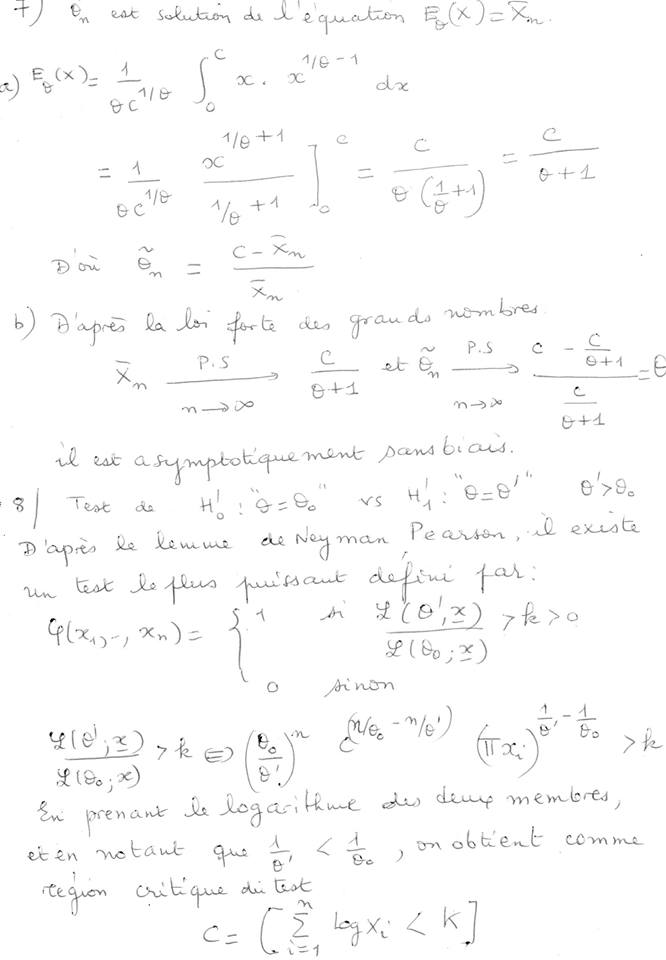 7) θ̃_n est solution de l'équation E_θ(X) = X̄_n.
a) E_θ(X) = 1/(θ c^{1/θ}) ∫_0^c x . x^{1/θ - 1} dx
= 1/(θ c^{1/θ}) x^{1/θ + 1}/(1/θ + 1) ]_0^c = c/(θ(1/θ + 1)) = c/(θ + 1)
D'où θ̃_n = (c - X̄_n)/X̄_n
b) D'après la loi forte des grands nombres.
X̄_n →^{P.S}_{n→∞} c/(θ+1) et θ̃_n →^{P.S}_{n→∞} (c - c/(θ+1))/(c/(θ+1)) = θ
il est asymptotiquement sans biais.
8/ Test de H'_0 : "θ = θ_0" vs H'_1 : "θ = θ'" θ' > θ_0
D'après le lemme de Neyman Pearson, il existe
un test le plus puissant défini par :
φ(x_1, -, x_n) = { 1 si ℒ(θ'; x)/ℒ(θ_0 ; x) > k > 0
0 sinon
ℒ(θ'; x)/ℒ(θ_0; x) > k ⇔ (θ_0/θ')^n c^{(n/θ_0 - n/θ')} (π x_i)^{1/θ' - 1/θ_0} > k
En prenant le logarithme des deux membres,
et en notant que 1/θ' < 1/θ_0, on obtient comme
region critique du test
C = [ Σ_{i=1}^n log x_i < K ]